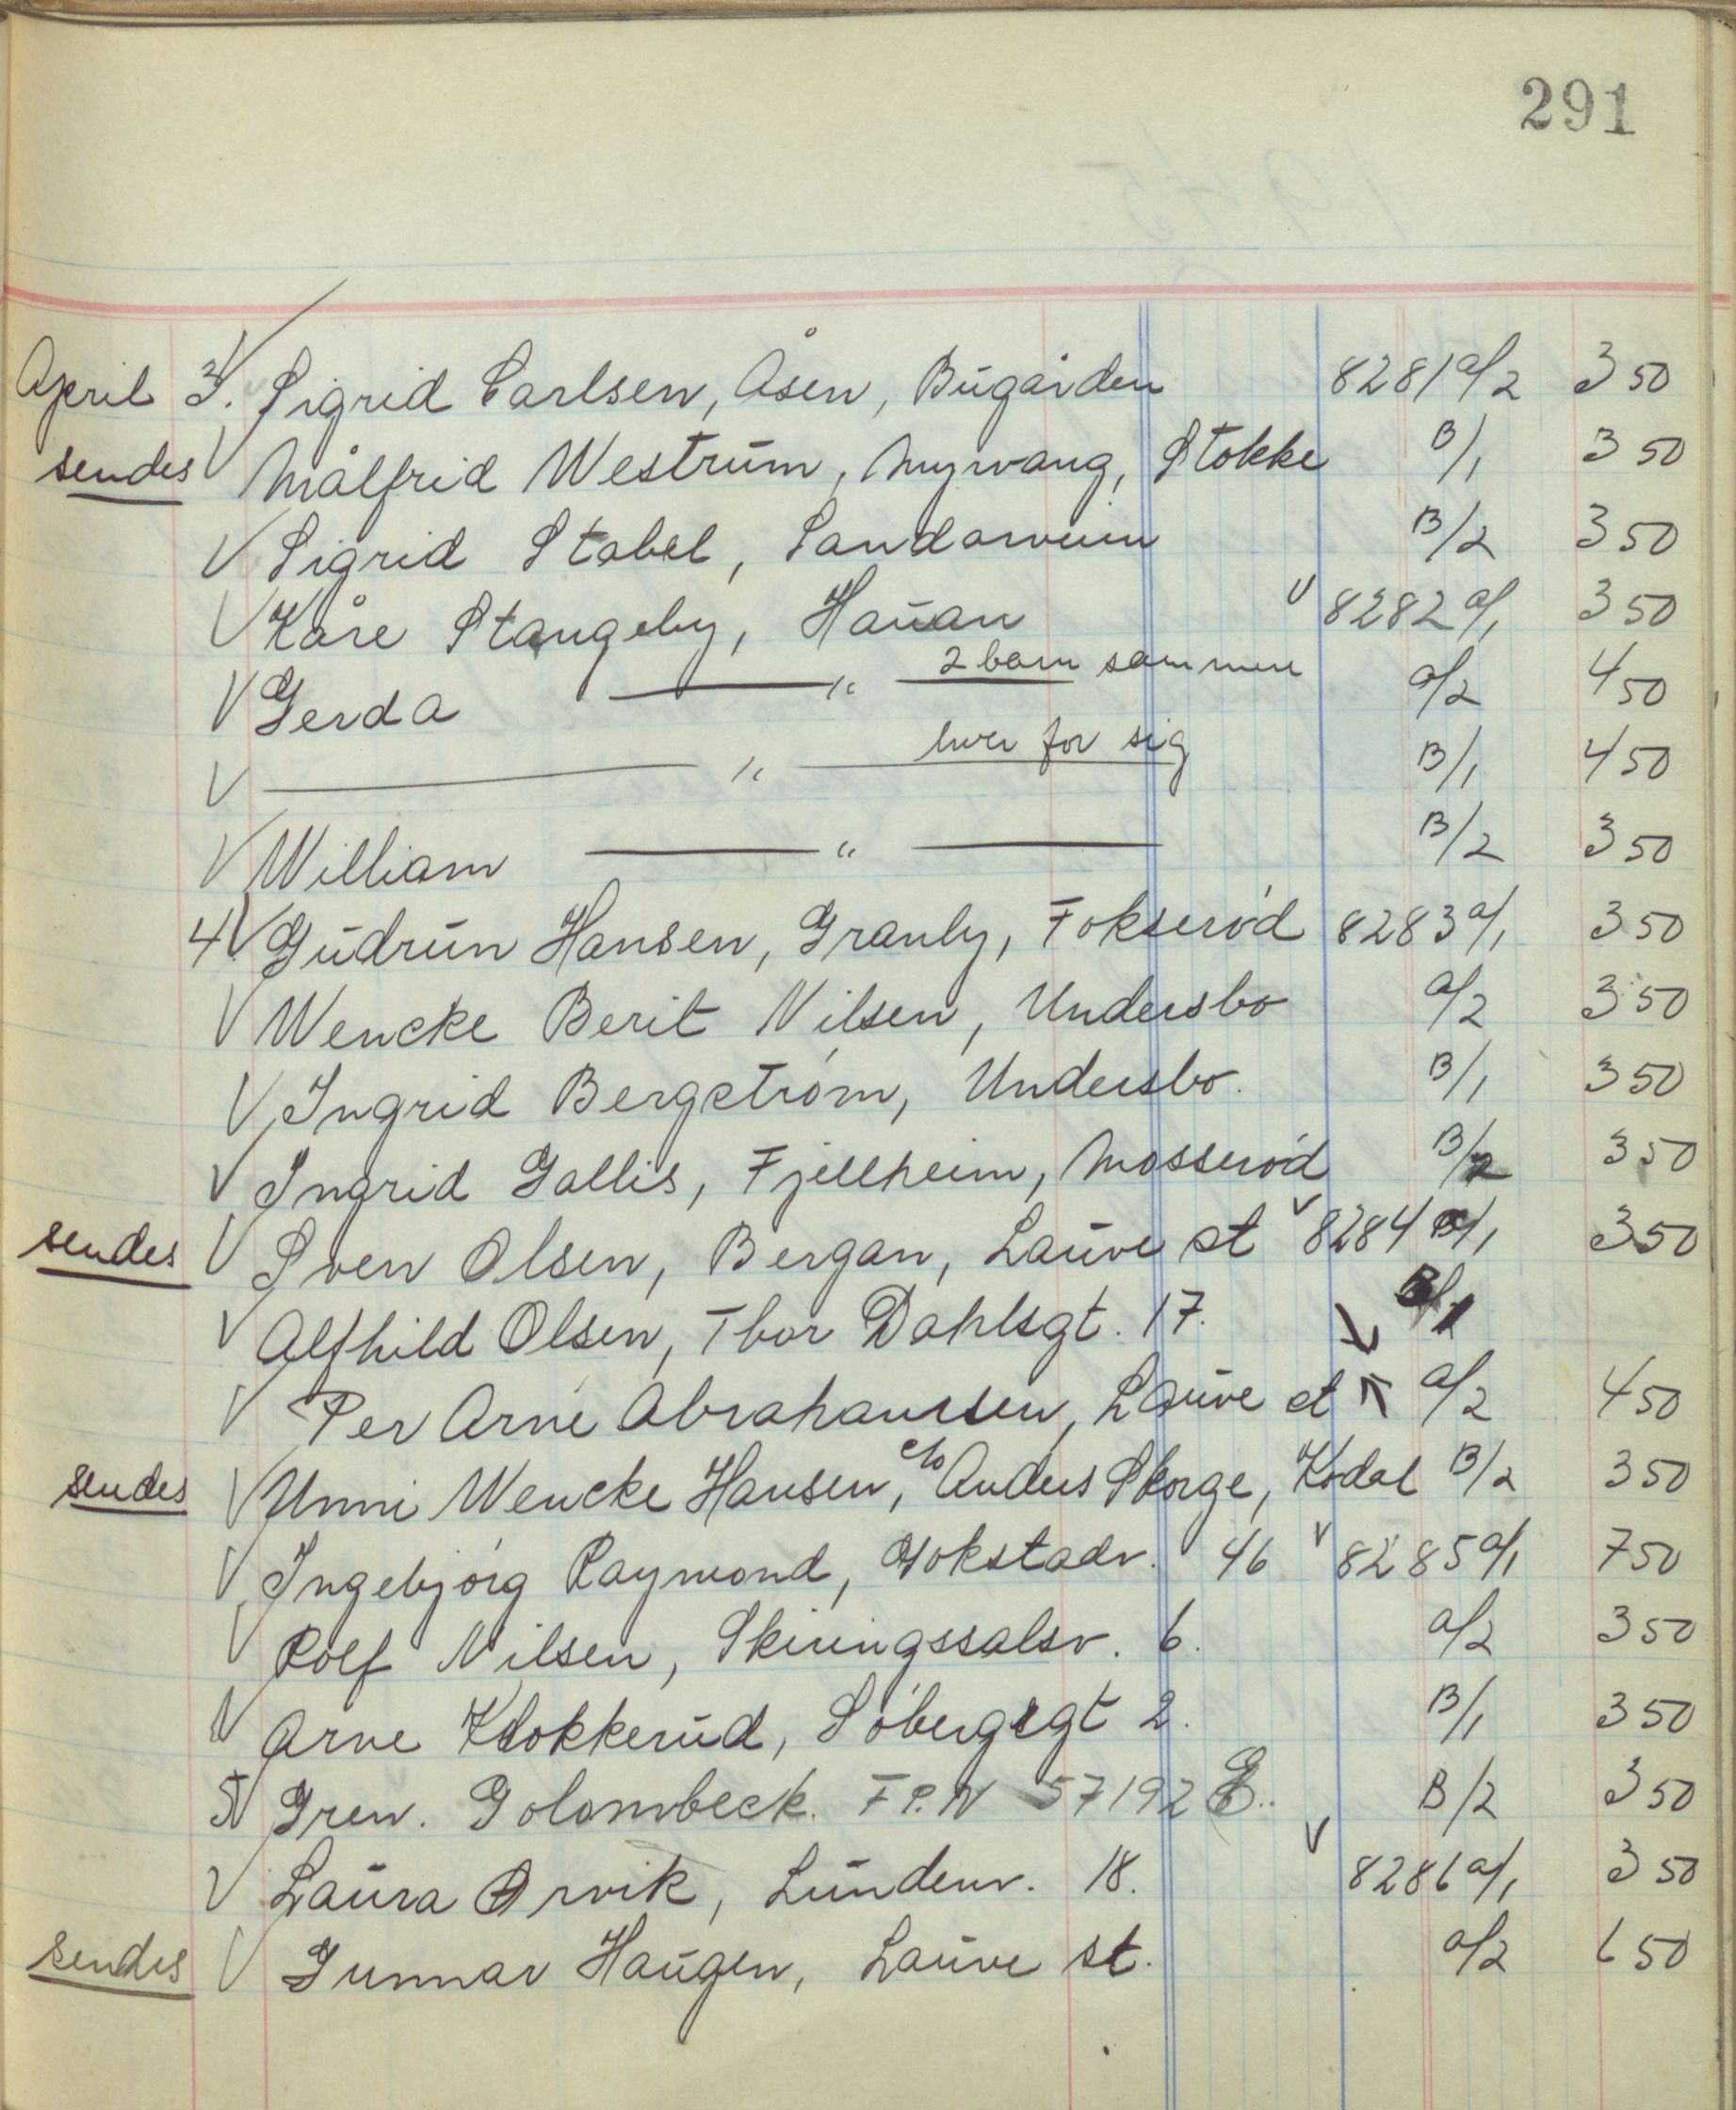 291
April 3. Sigrid Carlsen, Åsen, Bugården 8281 a/2 3 50
sendes Målfrid Westrum, Myrvang, Stokke B/1 3 50
Sigrid Stabel, Sandarveien B/2 3 50
Kåre Stangeby, Hauan 8282 a/1 3 50
Gerda — " — 2 barn sammen a/2 4 50
— " — hver for sig B/1 4 50
William — " — B/2 3 50
4. Gudrun Hansen, Granly, Fokserød 8283 a/1 3 50
Wencke Berit Nilsen, Undersbo a/2 3 50
Ingrid Bergström, Undersbo. B/1 3 50
Ingrid Gallis, Fjellheim, Mosserød B/2 3 50
sendes Sven Olsen, Bergan, Lauve st 8284 a/1 3 50
Alfhild Olsen, Thor Dahlsgt. 17. B/1
Per Arne Abrahamsen, Lauve st a/2 4 50
sendes Unni Wencke Hansen, c/o Anders Skorge, Kodal B/2 3 50
Ingebjørg Raymond, Gokstadv. 46 8285 a/1 7 50
Rolf Nilsen, Skiringssalsv. 6. a/2 3 50
Arne Klokkerud, Søbergsgt 2. B/1 3 50
5 Gren. Golombeck. F.P.N 57192 E.. B/2 3 50
Laura Orvik, Lundenv. 18. 8286 a/1 3 50
sendes Gunnar Haugen, Lauve st. a/2 6 50